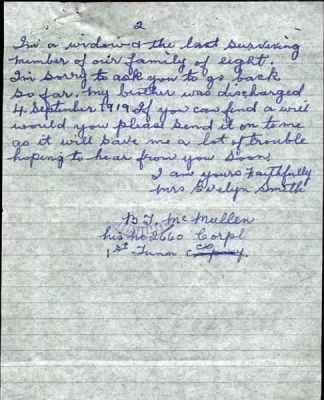 2
I'm a widow and the last surviving
member of our family of eight.
I'm sorry to ask you to go back
so far. My brother was discharged
4 September 1919. If you can find a will
would you please send it on to me
as it will save me a lot of trouble
hoping to hear from you soon.
I am yours Faithfully
Mrs Evelyn Smith
B J. McMullen
his no 2660 Corpl
1st Tunor Co